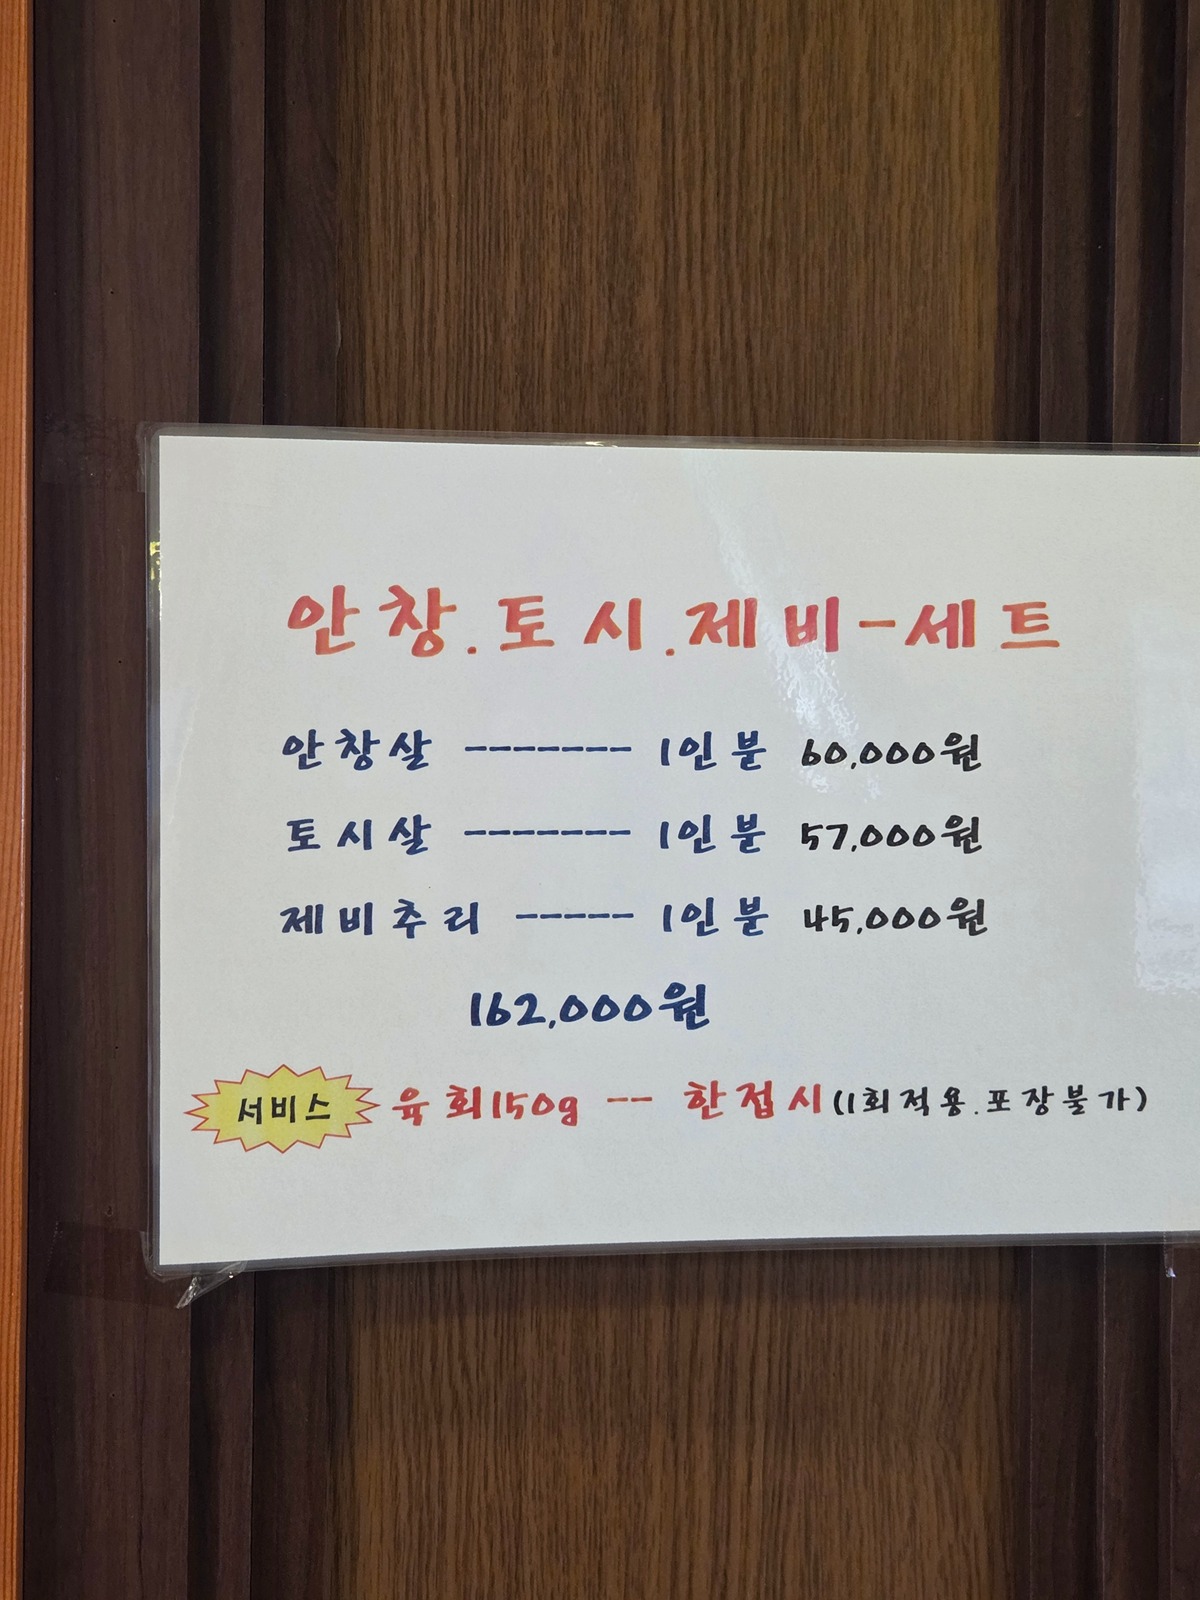 안창.토시.제비-세트
안창살 ------- 1인분 60,000원
토시살 ------- 1인분 57,000원
제비추리 ----- 1인분 45,000원
162,000원
서비스 육회150g -- 한접시(1회적용.포장불가)